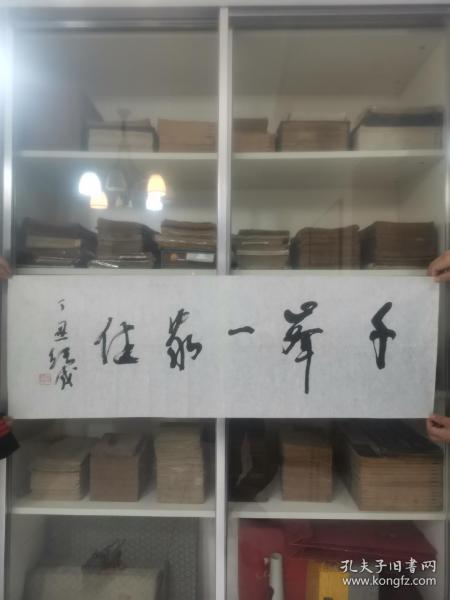 千峯一家住
丁丑
孔夫子旧书网
www.kongfz.com